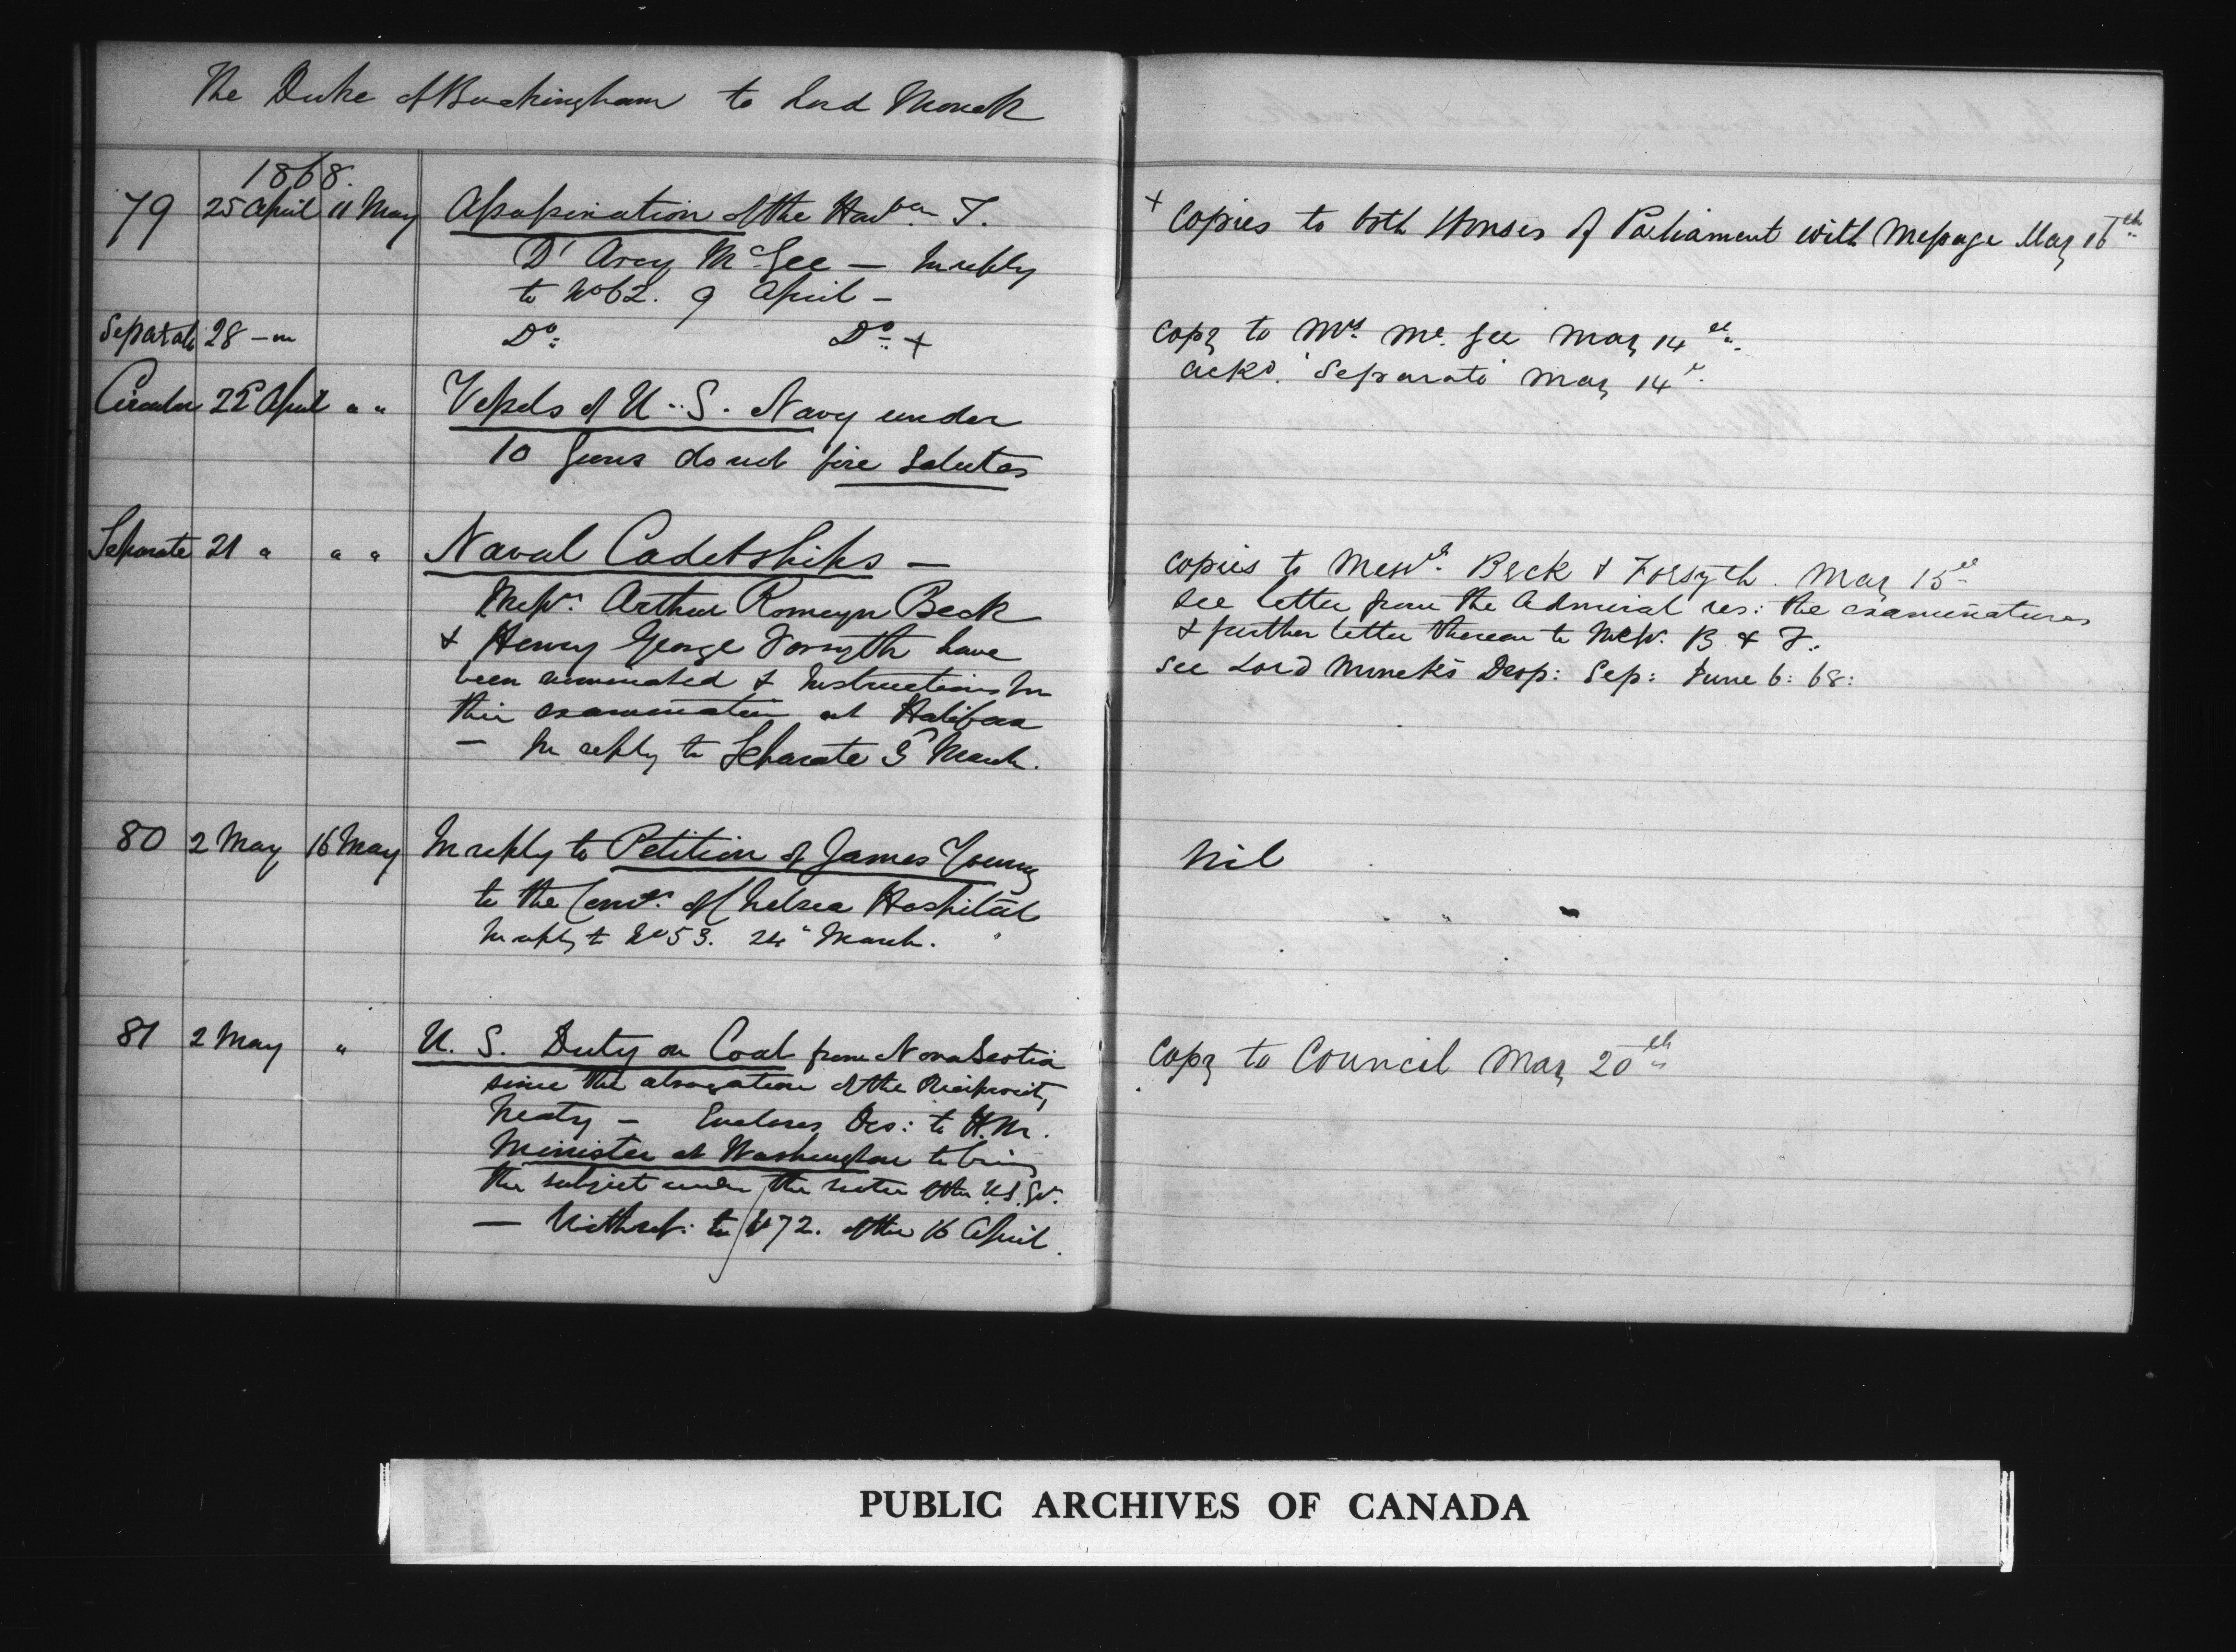 The Duke of Buckingham to Lord Monck
1868.
79 25 April 11 May Assassination of the Honble T.
D'Arcy McGee — In reply
to No 62. 9 April —
Separate 28 — " Do: Do: +
Circular 22 April " " Vessels of U.S. Navy under
10 Guns do not fire Salutes
Separate 21 " " " Naval Cadetships —
Messrs. Arthur Romeyn Beck
& Henry George Forsyth have
been nominated & Instructions for
their examination at Halifax
— In reply to Separate March.
80 2 May 16 May In reply to Petition of James Young
to the Comrs. of Chelsea Hospital
In reply to No 53. 24" March.
81 2 May " U. S. Duty on Coal from Nova Scotia
since the abrogation of the Reciprocity
Treaty — Encloses Des: to H.M.
Minister at Washington to bring
the subject under the notice of the U.S. Gt.
— With ref: to No 72. of the 16 April.
+ Copies to both Houses of Parliament with Message May 16th
Copy to Mrs. Mc. Gee May 14th
Ackd. 'Separate' May 14th
Copies to Messrs. Beck & Forsyth. May 15th
See letter from the Admiral res: the examinations
& further letter thereon to Messrs. B. & F.
See Lord Monck's Desp: Sep: June 6: 68:
Nil
Copy to Council May 20th
PUBLIC ARCHIVES OF CANADA